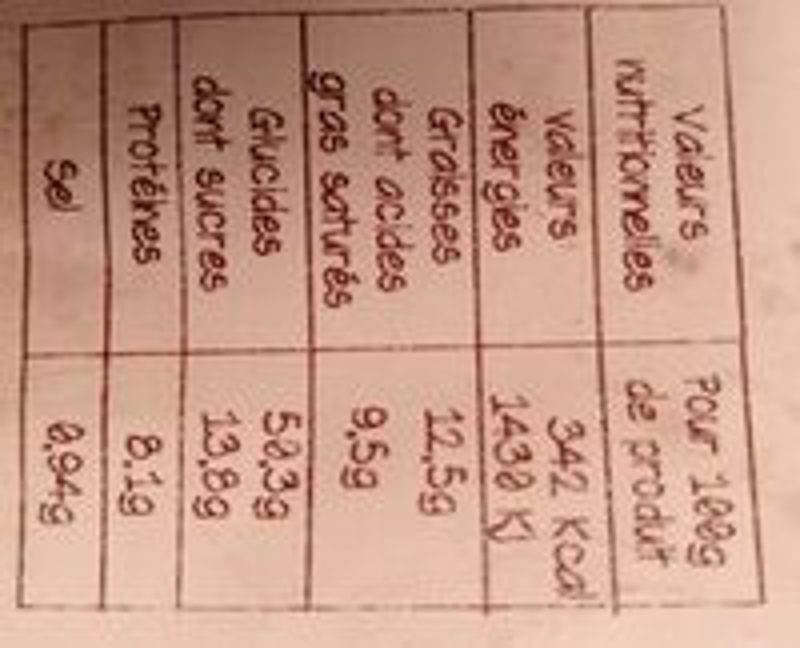 Valeurs nutritionnelles Pour 100g de produit
Valeurs énergies 342 Kcal 1430 KJ
Graisses 12,5g
dont acides gras saturés 9,5g
Glucides 50,3g
dont sucres 13,8g
Protéines 8,1g
Sel 0,94g